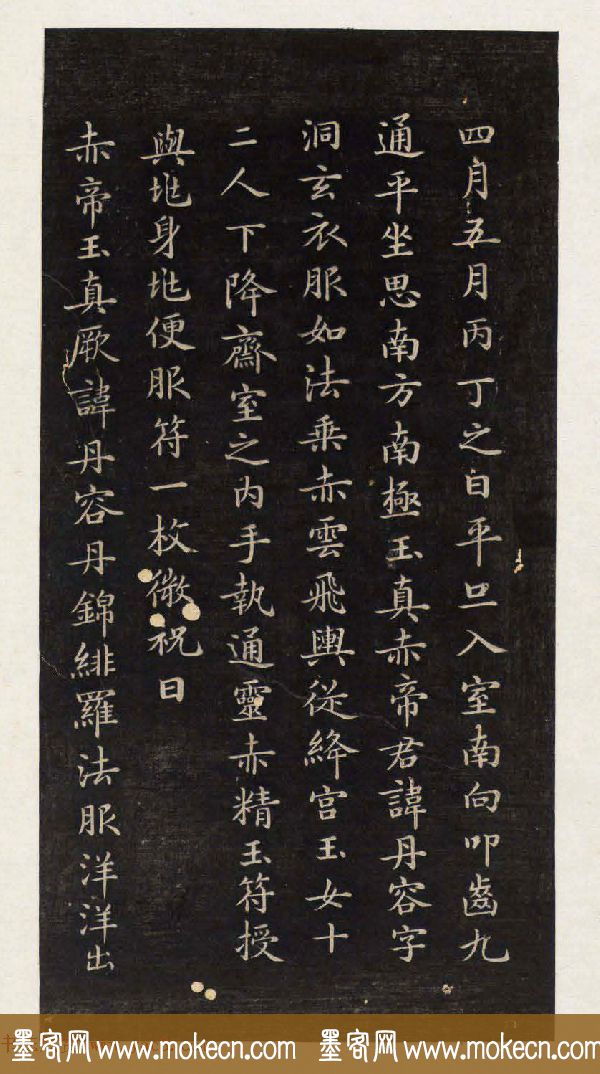 四月五月丙丁之日平旦入室南向叩齒九
通平坐思南方南極玉真赤帝君諱丹容字
洞玄衣服如法乘赤雲飛輿從絳宮玉女十
二人下降齋室之内手執通靈赤精玉符授
與地身地便服符一枚微祝曰
赤帝玉真厥諱丹容丹錦緋羅法服洋洋出
墨客网 www.mokecn.com 墨客网 www.mokecn.com